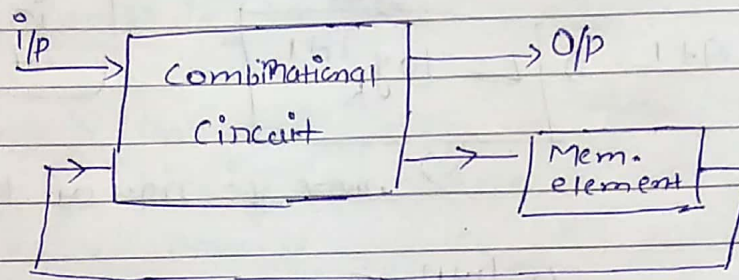 i/p
O/p
Combinational
Circuit
Mem.
element